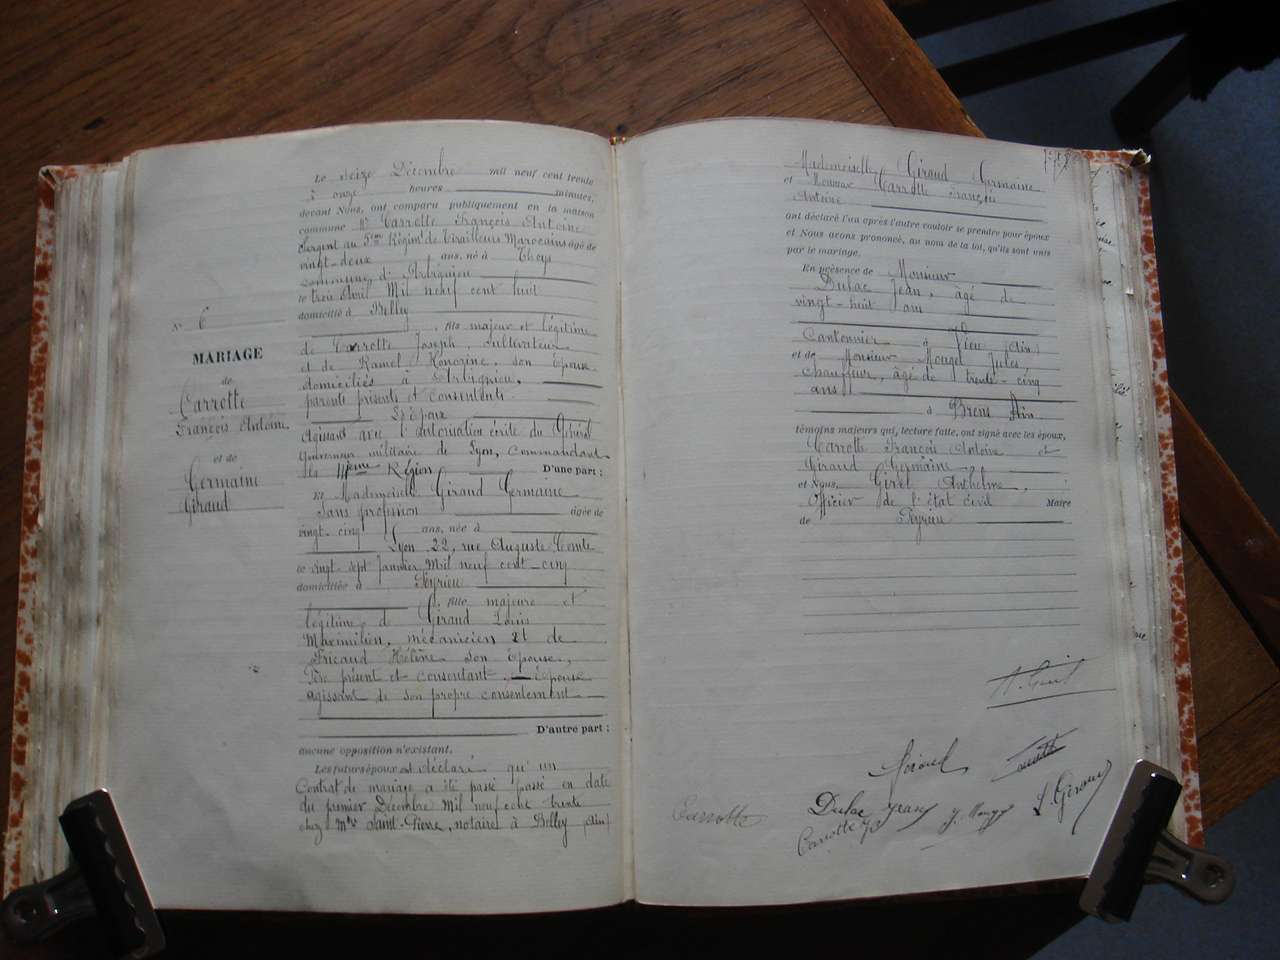 Le seize Décembre mil neuf cent trente
à onze heures minutes,
devant Nous, ont comparu publiquement en la maison
commune Mr Carrotte François Antoine
Sergent au 5ème Régimt de Tirailleurs Marocains âgé de
vingt-deux ans, né à Theys
commune d' Arbignieu
le trois Avril Mil neuf cent huit
domicilié à Belley
, fils majeur et légitime
de Carrotte Joseph, cultivateur
et de Ramel Honorine, son Epouse
domiciliés à Arbignieu,
parents présents et consentents
L'Epoux
Agissant avec l'autorisation écrite du Général
Gouverneur militaire de Lyon, Commandant
la 14eme Région D'une part ;
Et Mademoiselle Giraud Germaine
Sans profession âgée de
vingt-cinq ans, née à
Lyon 22, rue Auguste Comte
le vingt-sept Janvier Mil neuf cent-cinq
domiciliée à Peyrieu
, fille majeure et
légitime de Giraud Louis
Maximilien, mécanicien et de
Fricaud Hélène son Epouse,
Père présent et consentant, Epouse
agissant de son propre consentement
D'autre part ;
aucune opposition n'existant.
Les futurs époux ont déclaré qu'un
Contrat de mariage a été passé passé en date
du premier Décembre Mil neuf cent trente
chez Mtre Saint-Pierre, notaire à Belley (Ain)
N° 6
MARIAGE
de
Carrotte
François Antoine
et de
Germaine
Giraud
Mademoiselle Giraud Germaine
et Monsieur Carrotte François
Antoine
ont déclaré l'un après l'autre vouloir se prendre pour époux
et Nous avons prononcé, au nom de la loi, qu'ils sont unis
par le mariage.
En présence de Monsieur
Dulac Jean, âgé de
vingt-huit ans
Cantonnier à Vieu (Ain)
et de Monsieur Mouget Jules
Chauffeur, âgé de trente-cinq
ans
à Brens Ain
témoins majeurs qui, lecture faite, ont signé avec les époux,
Carrotte François Antoine et
Giraud Germaine
et Nous, Girel Anthelme,
Officier de l'état civil Maire
de Peyrieu
A. Girel
Giraud
Carrotte
Dulac Jean
L. Giraud
Carrotte